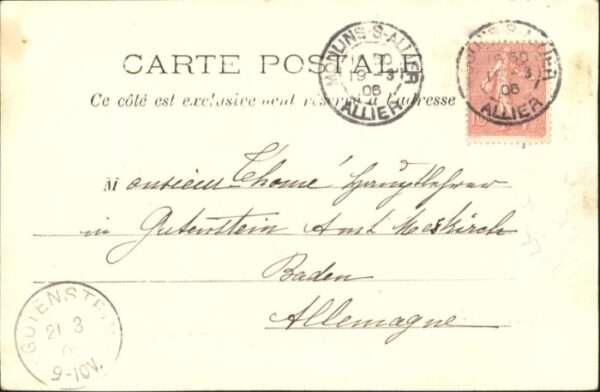 CARTE POSTALE
Ce côté est exclusivement réservé à l'adresse
MOULINS-S-ALLIER
19 -3
06
ALLIER
50
-3
06
ALLIER
10
Monsieur Thomé Hauptlehrer
in Gutenstein Amt Meskirch
Baden
Allemagne
GUTENSTEIN
21 3
9-10V.